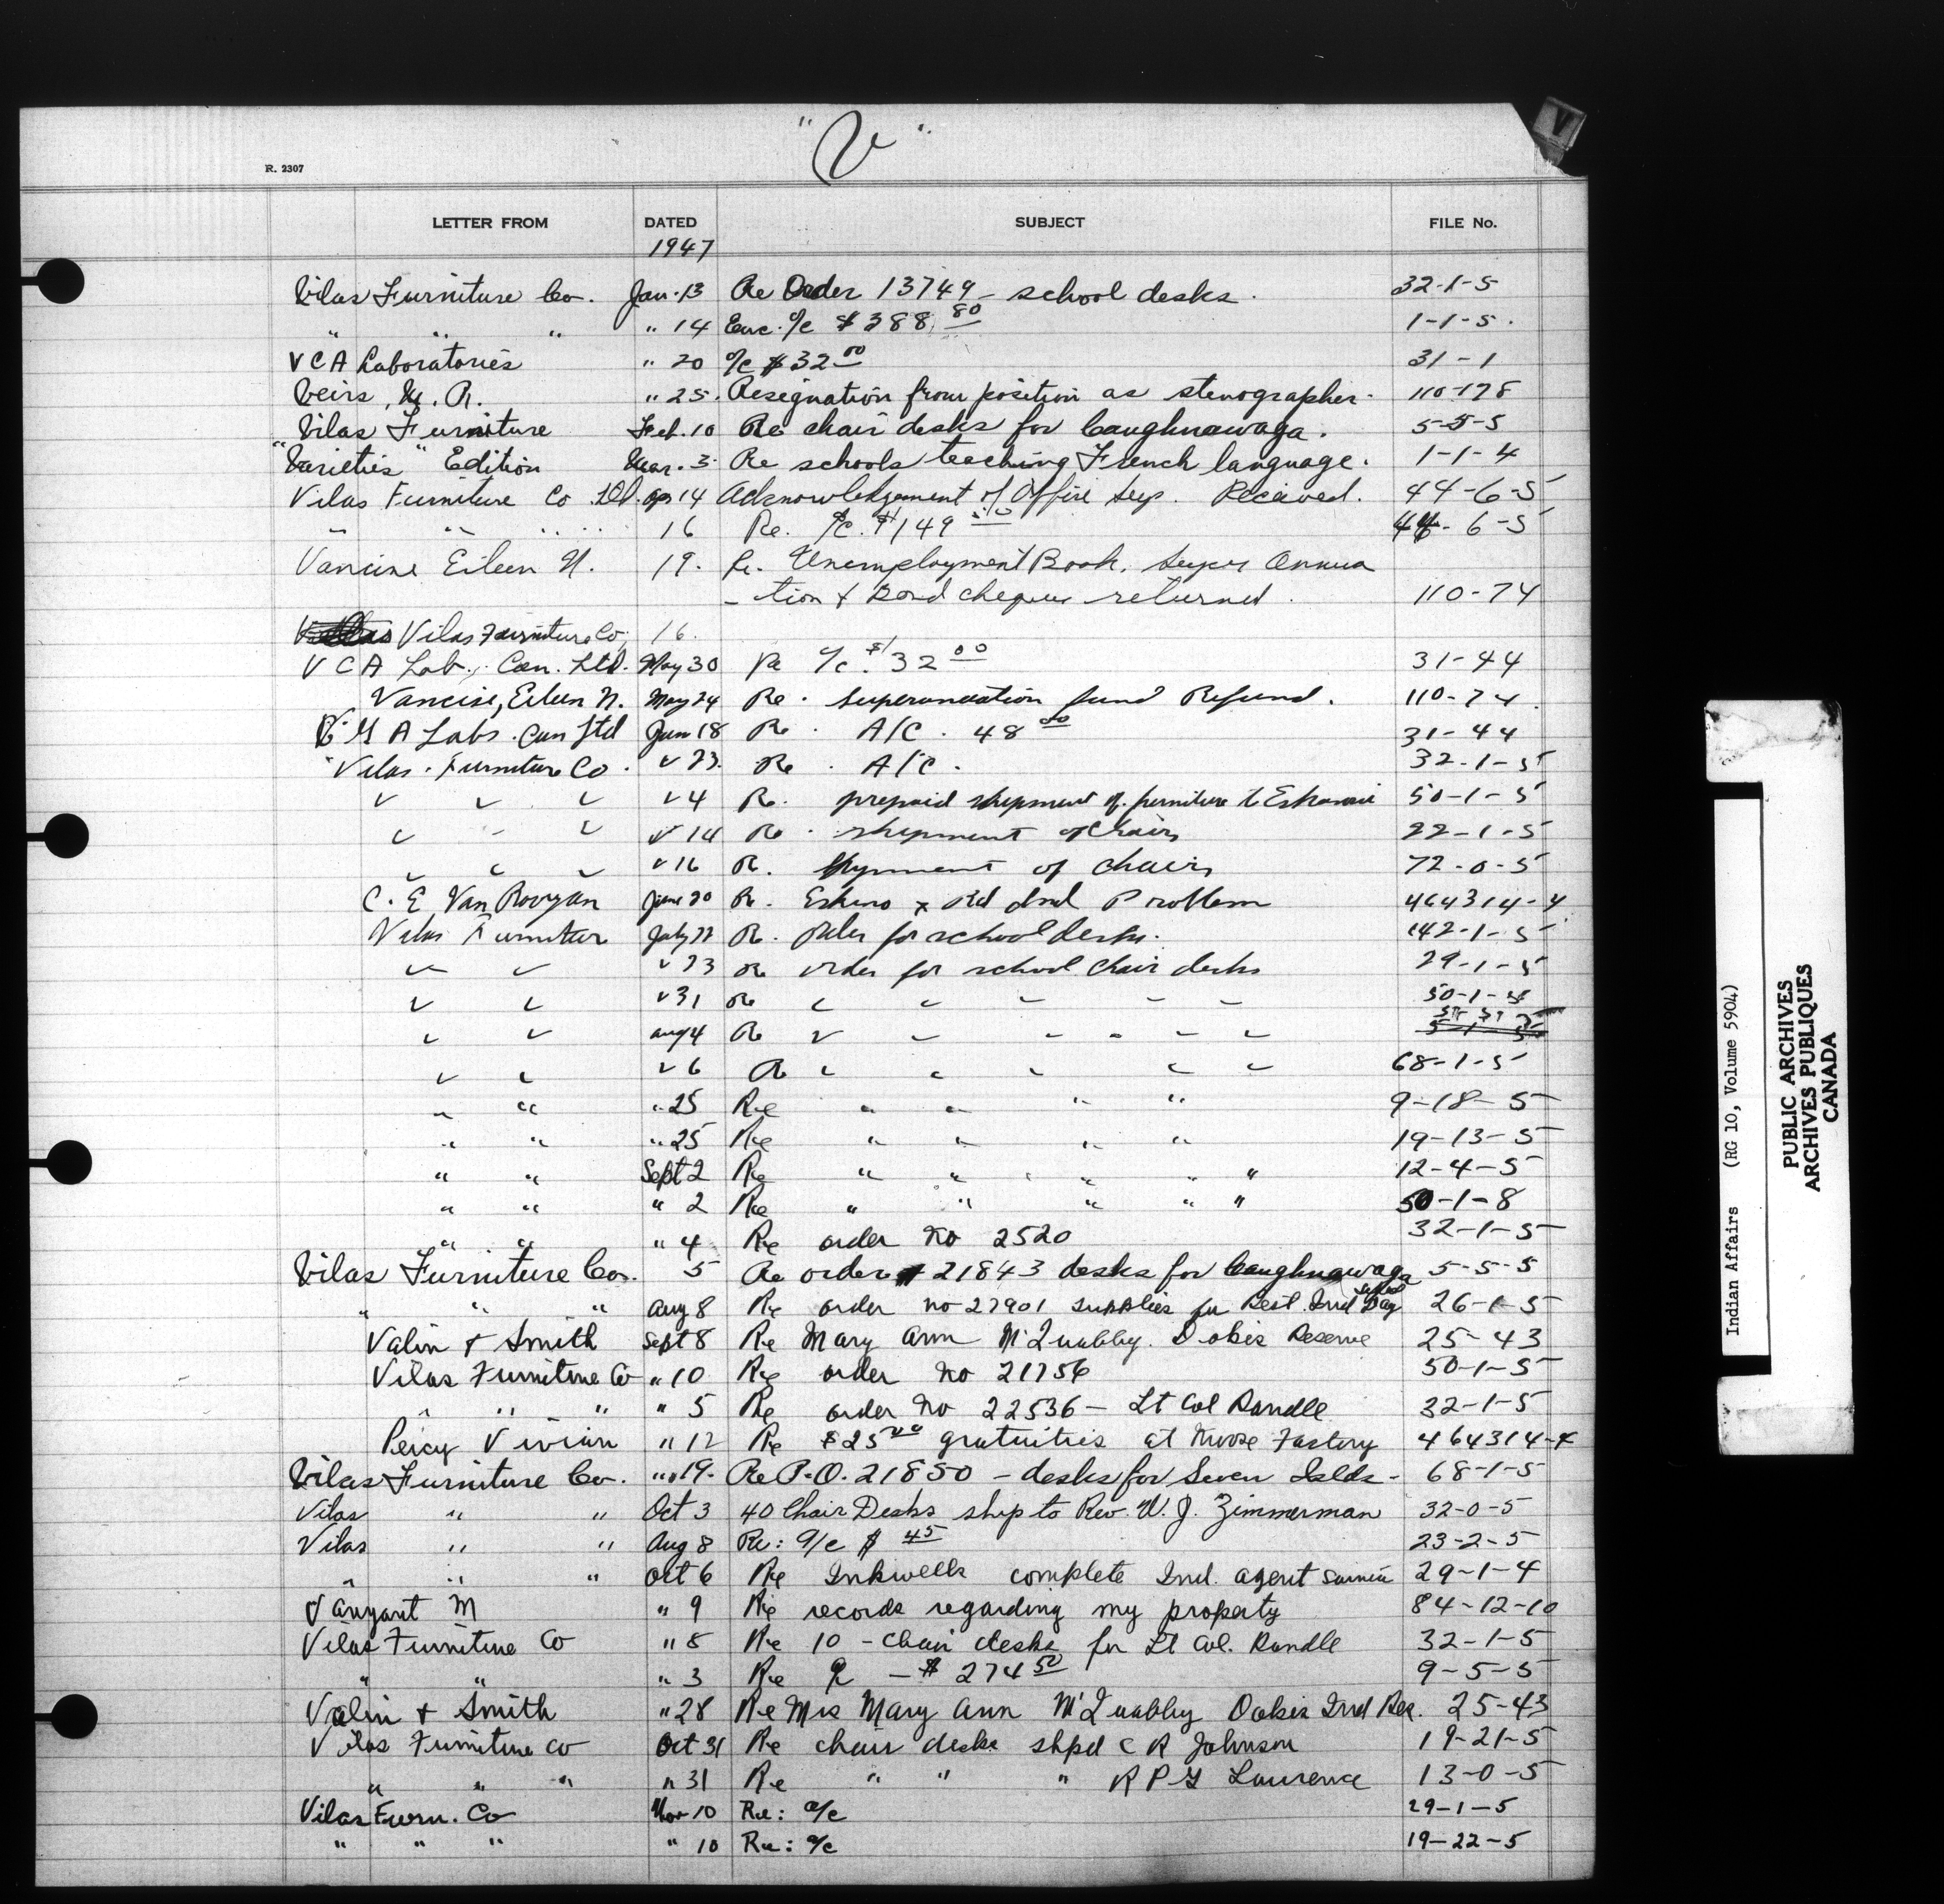 "V"
V
R. 2307
LETTER FROM DATED SUBJECT FILE No.
1947
Vilas Furniture Co. Jan. 13 Re Order 13749 - school desks. 32-1-5
" " " " 14 Enc. a/c $388.80 1-1-5.
VCA Laboratories " 20 a/c $32.00 31-1
Veirs, M. R. " 25. Resignation from position as stenographer. 110-178
Vilas Furniture Feb. 10 Re chair desks for Caughnawaga. 5-5-5
"Varieties" Edition Mar. 3. Re schools teaching French language. 1-1-4
Vilas Furniture Co Ltd. Ap 14 Acknowledgement of Office Received. 44-6-5
" " " 16 Re. a/c. $149 44-6-5
Vancise Eileen N. 19. Re. Unemployment Book, Super Annua
- tion & Bond cheques returned. 110-74
Vilas Furniture Co, 16.
V C A Lab. Can. Ltd. May 30 Re a/c. $32.00 31-44
Vancise, Eileen N. May 24 Re. Superannuation fund Refund. 110-74.
V G A Labs. Can Ltd Jun 18 Re. A/C. 48.00 31-44
Vilas. Furniture Co. " 23. Re. A/C. 32-1-5
" " " " 4 Re. prepaid shipment of furniture to 50-1-5
" " " " 14 Re. shipment of Chairs 22-1-5
" " " " 16 Re. shipment of chairs 72-0-5
C. E Van Rooyan June 20 Re. Eskimo & Problem 464314-4
Vilas Furniture July 22 Re. order for school desks. 142-1-5
" " " 23 Re order for school chair desks 29-1-5
" " " 31 Re " " " " " 50-1-5
" " Aug 4 Re " " " " " "
" " " 6 Re " " " " " 68-1-5
" " " 25 Re " " " " 9-18-5
" " " 25 Re " " " " 19-13-5
" " Sept 2 Re " " " " " 12-4-5
" " " 2 Re " " " " " 50-1-8
" " " 4 Re order no 2520 32-1-5
Vilas Furniture Co. 5 Re order # 21843 desks for Caughnawaga 5-5-5
" " " Aug 8 Re order no 27901 supplies for Rest. Ind Day School 26-1-5
Valin & Smith Sept 8 Re Mary Ann McQuabby. Dokis Reserve 25-43
Vilas Furniture Co " 10 Re order no 21756 50-1-5
" " " " 5 Re order no 22536 - Lt Col Randle 32-1-5
Percy Vivian " 12 Re $25.00 gratuities at Moose Factory 464314-4
Vilas Furniture Co. " 19. Re P.O. 21850 - desks for Seven Islds - 68-1-5
Vilas " " Oct 3 40 Chair Desks ship to Rev. W. J. Zimmerman 32-0-5
Vilas " " Aug 8 Re: a/c $ 45 23-2-5
" " " Oct 6 Re Inkwells complete Ind. agent Sarnia 29-1-4
Vanyant M " 9 Re records regarding my property 84-12-10
Vilas Furniture Co " 8 Re 10 - chair desks for Lt Col. Randle 32-1-5
" " " 3 Re a/c - $ 274.50 9-5-5
Valin & Smith " 28 Re Mrs Mary Ann McQuabby Dokis Ind Res. 25-43
Vilas Furniture Co Oct 31 Re chair desks shpd C R Johnson 19-21-5
" " " " 31 Re " " " R P G Laurence 13-0-5
Vilas Furn. Co Nov 10 Re: a/c 29-1-5
" " " " 10 Re: a/c 19-22-5
Indian Affairs (RG 10, Volume 5904)
PUBLIC ARCHIVES
ARCHIVES PUBLIQUES
CANADA